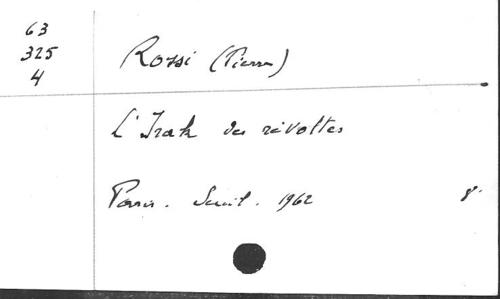 63
325
4
Rossi (Pierre)
L'Irak des révoltes
Paris. Seuil. 1962 8°